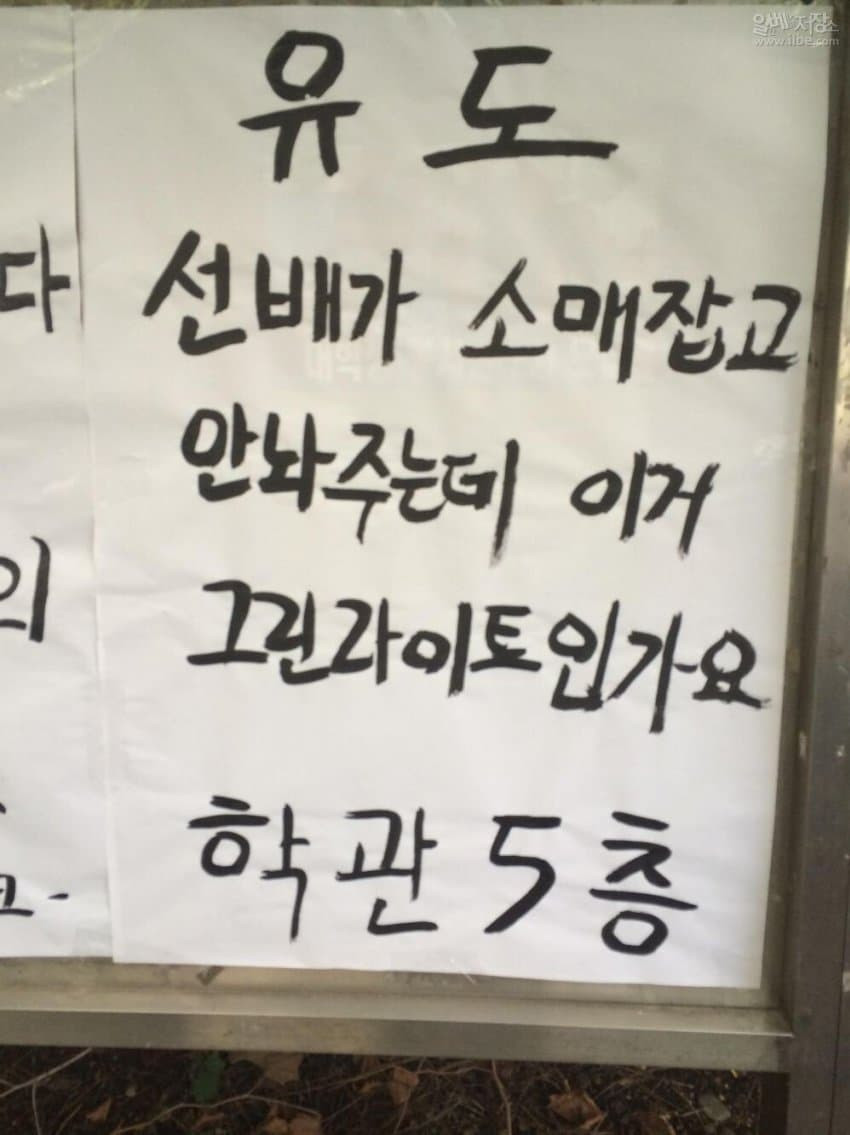 일베저장소
www.ilbe.com
유도
선배가 소매잡고
안놔주는데 이거
그린라이트인가요
학관 5층
다
의